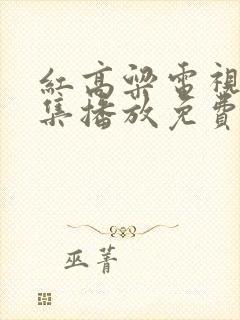 紅高梁電視
集播放免費
巫菁